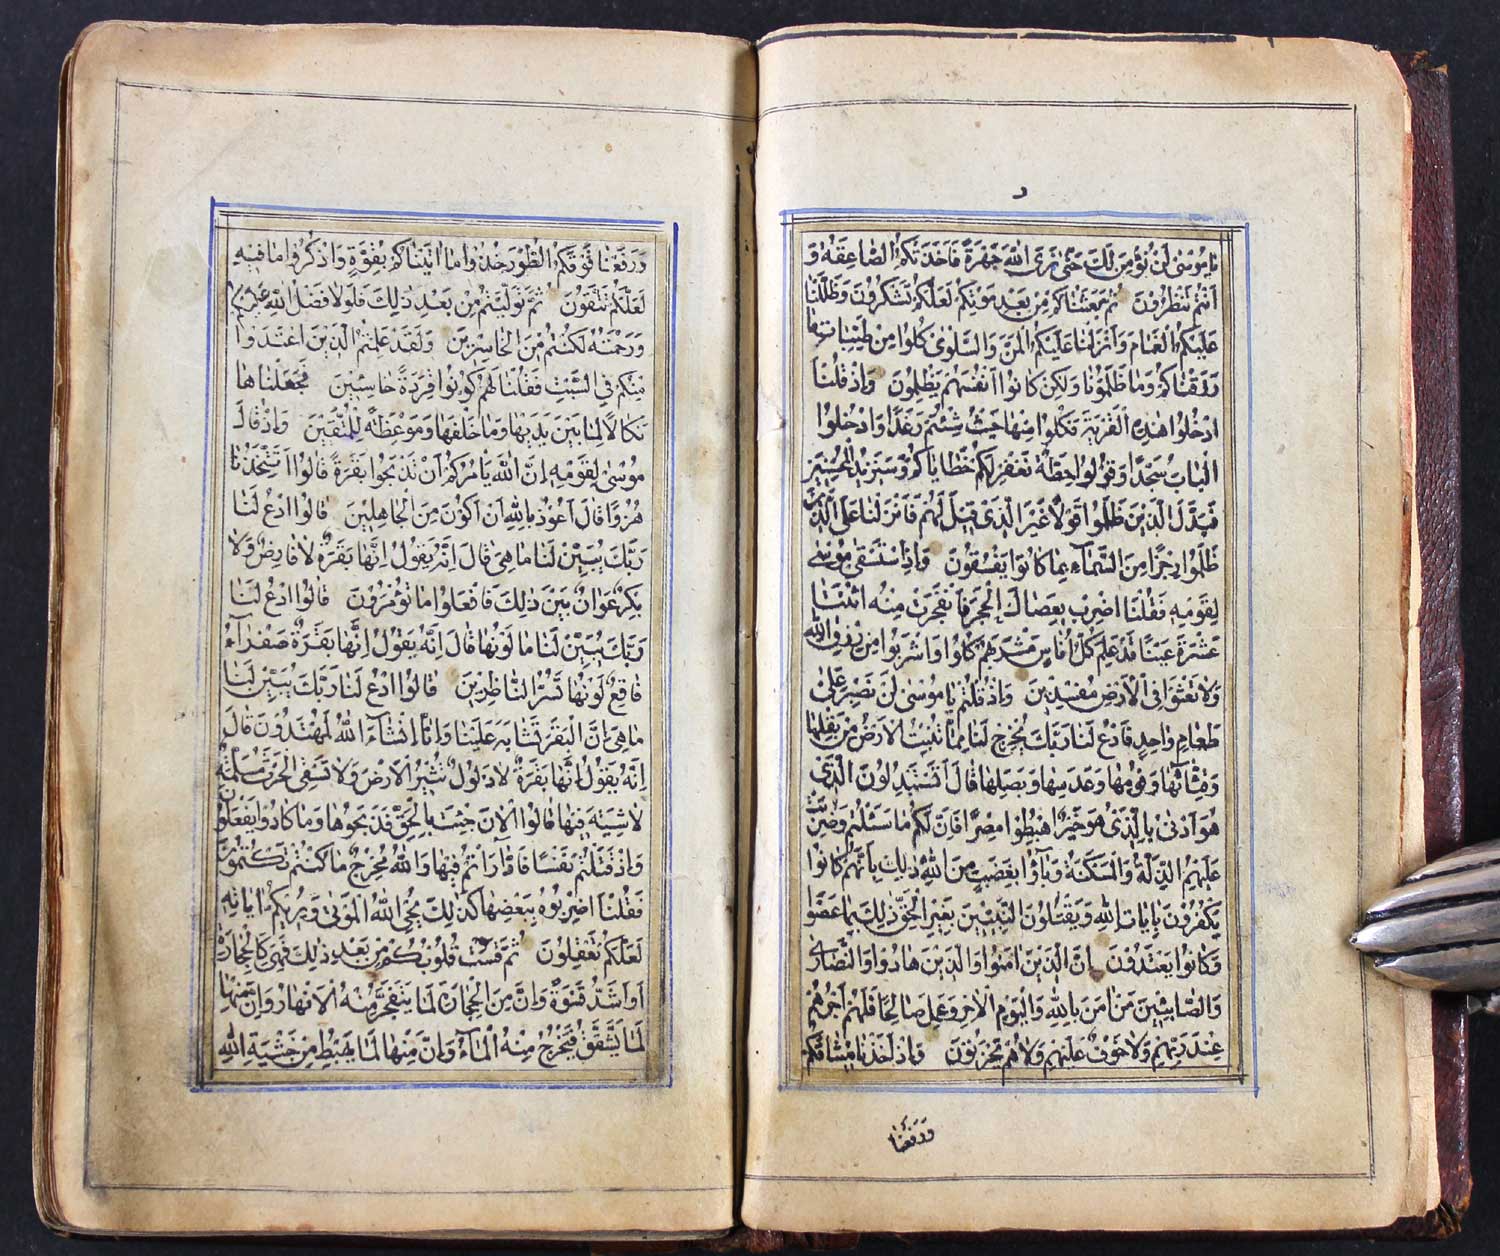 د
يا موسى لن نؤمن لك حتى نرى الله جهرة فاخذتكم الصاعقة و
انتم تنظرون ثم بعثناكم من بعد موتكم لعلكم تشكرون وظللنا
عليكم الغمام وانزلنا عليكم المن والسلوى كلوا من طيبات ما
رزقناكم وما ظلمونا ولكن كانوا انفسهم يظلمون واذ قلنا
ادخلوا هذه القرية فكلوا منها حيث شئتم رغدا وادخلوا
الباب سجدا وقولوا حطة نغفر لكم خطاياكم وسنزيد المحسنين
فبدل الذين ظلموا قولا غير الذي قيل لهم فانزلنا على الذين
ظلموا رجزا من السماء بما كانوا يفسقون واذ استسقى موسى
لقومه فقلنا اضرب بعصاك الحجر فانفجرت منه اثنتا
عشرة عينا قد علم كل اناس مشربهم كلوا واشربوا من رزق الله
ولا تعثوا في الارض مفسدين واذ قلتم يا موسى لن نصبر على
طعام واحد فادع لنا ربك يخرج لنا مما تنبت الارض من بقلها
وقثائها وفومها وعدسها وبصلها قال اتستبدلون الذي
هو ادنى بالذي هو خير اهبطوا مصرا فان لكم ما سئلتم وضربت
عليهم الذلة والمسكنة وباؤا بغضب من الله ذلك بانهم كانوا
يكفرون بايات الله ويقتلون النبيين بغير الحق ذلك بما عصوا
وكانوا يعتدون ان الذين امنوا والذين هادوا والنصارى
والصابئين من امن بالله واليوم الاخر وعمل صالحا فلهم اجرهم
عند ربهم ولا خوف عليهم ولا هم يحزنون واذ اخذنا ميثاقكم
ورفعنا
ورفعنا فوقكم الطور خذوا ما اتيناكم بقوة واذكروا ما فيه
لعلكم تتقون ثم توليتم من بعد ذلك فلولا فضل الله عليكم
ورحمته لكنتم من الخاسرين ولقد علمتم الذين اعتدوا
منكم في السبت فقلنا لهم كونوا قردة خاسئين فجعلناها
نكالا لما بين يديها وما خلفها وموعظة للمتقين واذ قال
موسى لقومه ان الله يامركم ان تذبحوا بقرة قالوا اتتخذنا
هزوا قال اعوذ بالله ان اكون من الجاهلين قالوا ادع لنا
ربك يبين لنا ما هي قال انه يقول انها بقرة لا فارض ولا
بكر عوان بين ذلك فافعلوا ما تؤمرون قالوا ادع لنا
ربك يبين لنا ما لونها قال انه يقول انها بقرة صفراء
فاقع لونها تسر الناظرين قالوا ادع لنا ربك يبين لنا
ما هي ان البقر تشابه علينا وانا انشاء الله لمهتدون قال
انه يقول انها بقرة لا ذلول تثير الارض ولا تسقي الحرث مسلمة
لا شية فيها قالوا الان جئت بالحق فذبحوها وما كادوا يفعلون
واذ قتلتم نفسا فاداراتم فيها والله مخرج ما كنتم تكتمون
فقلنا اضربوه ببعضها كذلك يحي الله الموتى ويريكم اياته
لعلكم تعقلون ثم قست قلوبكم من بعد ذلك فهي كالحجارة
او اشد قسوة وان من الحجارة لما يتفجر منه الانهار وان منها
لما يشقق فيخرج منه الماء وان منها لما يهبط من خشية الله